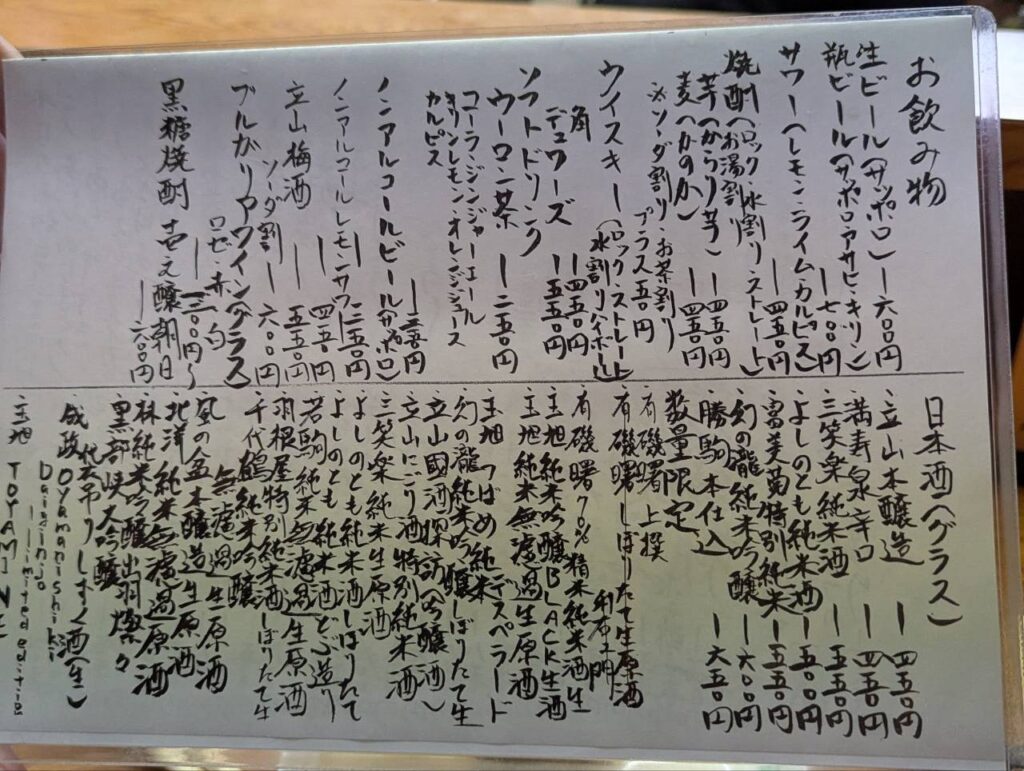 お飲み物
生ビール(サッポロ)ー六〇〇円
瓶ビール(サッポロ・アサヒ・キリン)ー七〇〇円
サワー(レモン・ライム・カルピス)ー四五〇円
焼酎(ロック・水割り・ストレート・お湯割り)
芋(からり芋)ー四五〇円
麦(かのか)ー四五〇円
※ソーダ割り・お茶割りプラス五〇円
ウイスキー(ロック・ストレート・水割り・ハイボール)
角ー四五〇円
デュワーズー五五〇円
ソフトドリンク
ウーロン茶ー二五〇円
コーラ・ジンジャーエール
キリンレモン・オレンジジュース
カルピス
ノンアルコールビール(サッポロ)
ノンアルコールレモンサワー
立山梅酒ー四五〇円
ソーダ割ー五五〇円
ブルガリアワイン(グラス)ー六〇〇円
ロゼ・赤・白
黒糖焼酎 壱乃醸朝日ー六〇〇円
日本酒(グラス)
立山本醸造ー四五〇円
満寿泉辛口ー四五〇円
三笑楽純米酒ー五五〇円
よしのとも純米酒ー五五〇円
富美菊特別純米ー五五〇円
幻の瀧純米吟醸ー六〇〇円
勝駒本仕込ー六五〇円
数量限定
有磯曙上撰
有磯曙しぼりたて生原酒
有磯曙70%精米純米酒生
玉旭純米吟醸BLACK生酒
玉旭純米無濾過生原酒
玉旭つばめ純米 デスペラード
幻の瀧純米吟醸しぼりたて生
立山國酒探訪(吟醸酒)
立山にごり酒特別純米酒
三笑楽純米生原酒
よしのとも純米酒しぼりたて
よしのとも純米酒どぶ造り
若駒純米無濾過生原酒
羽根屋特別純米酒しぼりたて生
千代鶴純米吟醸 無濾過生原酒
風の盆本醸造生原酒
北洋純米無濾過原酒
林純米吟醸出羽燦々
黒部峡大吟醸
成政OYAMANISHIKI
袋吊りしずく酒(生)
Daiginjo
limited editio
玉旭 TOYAMI NE